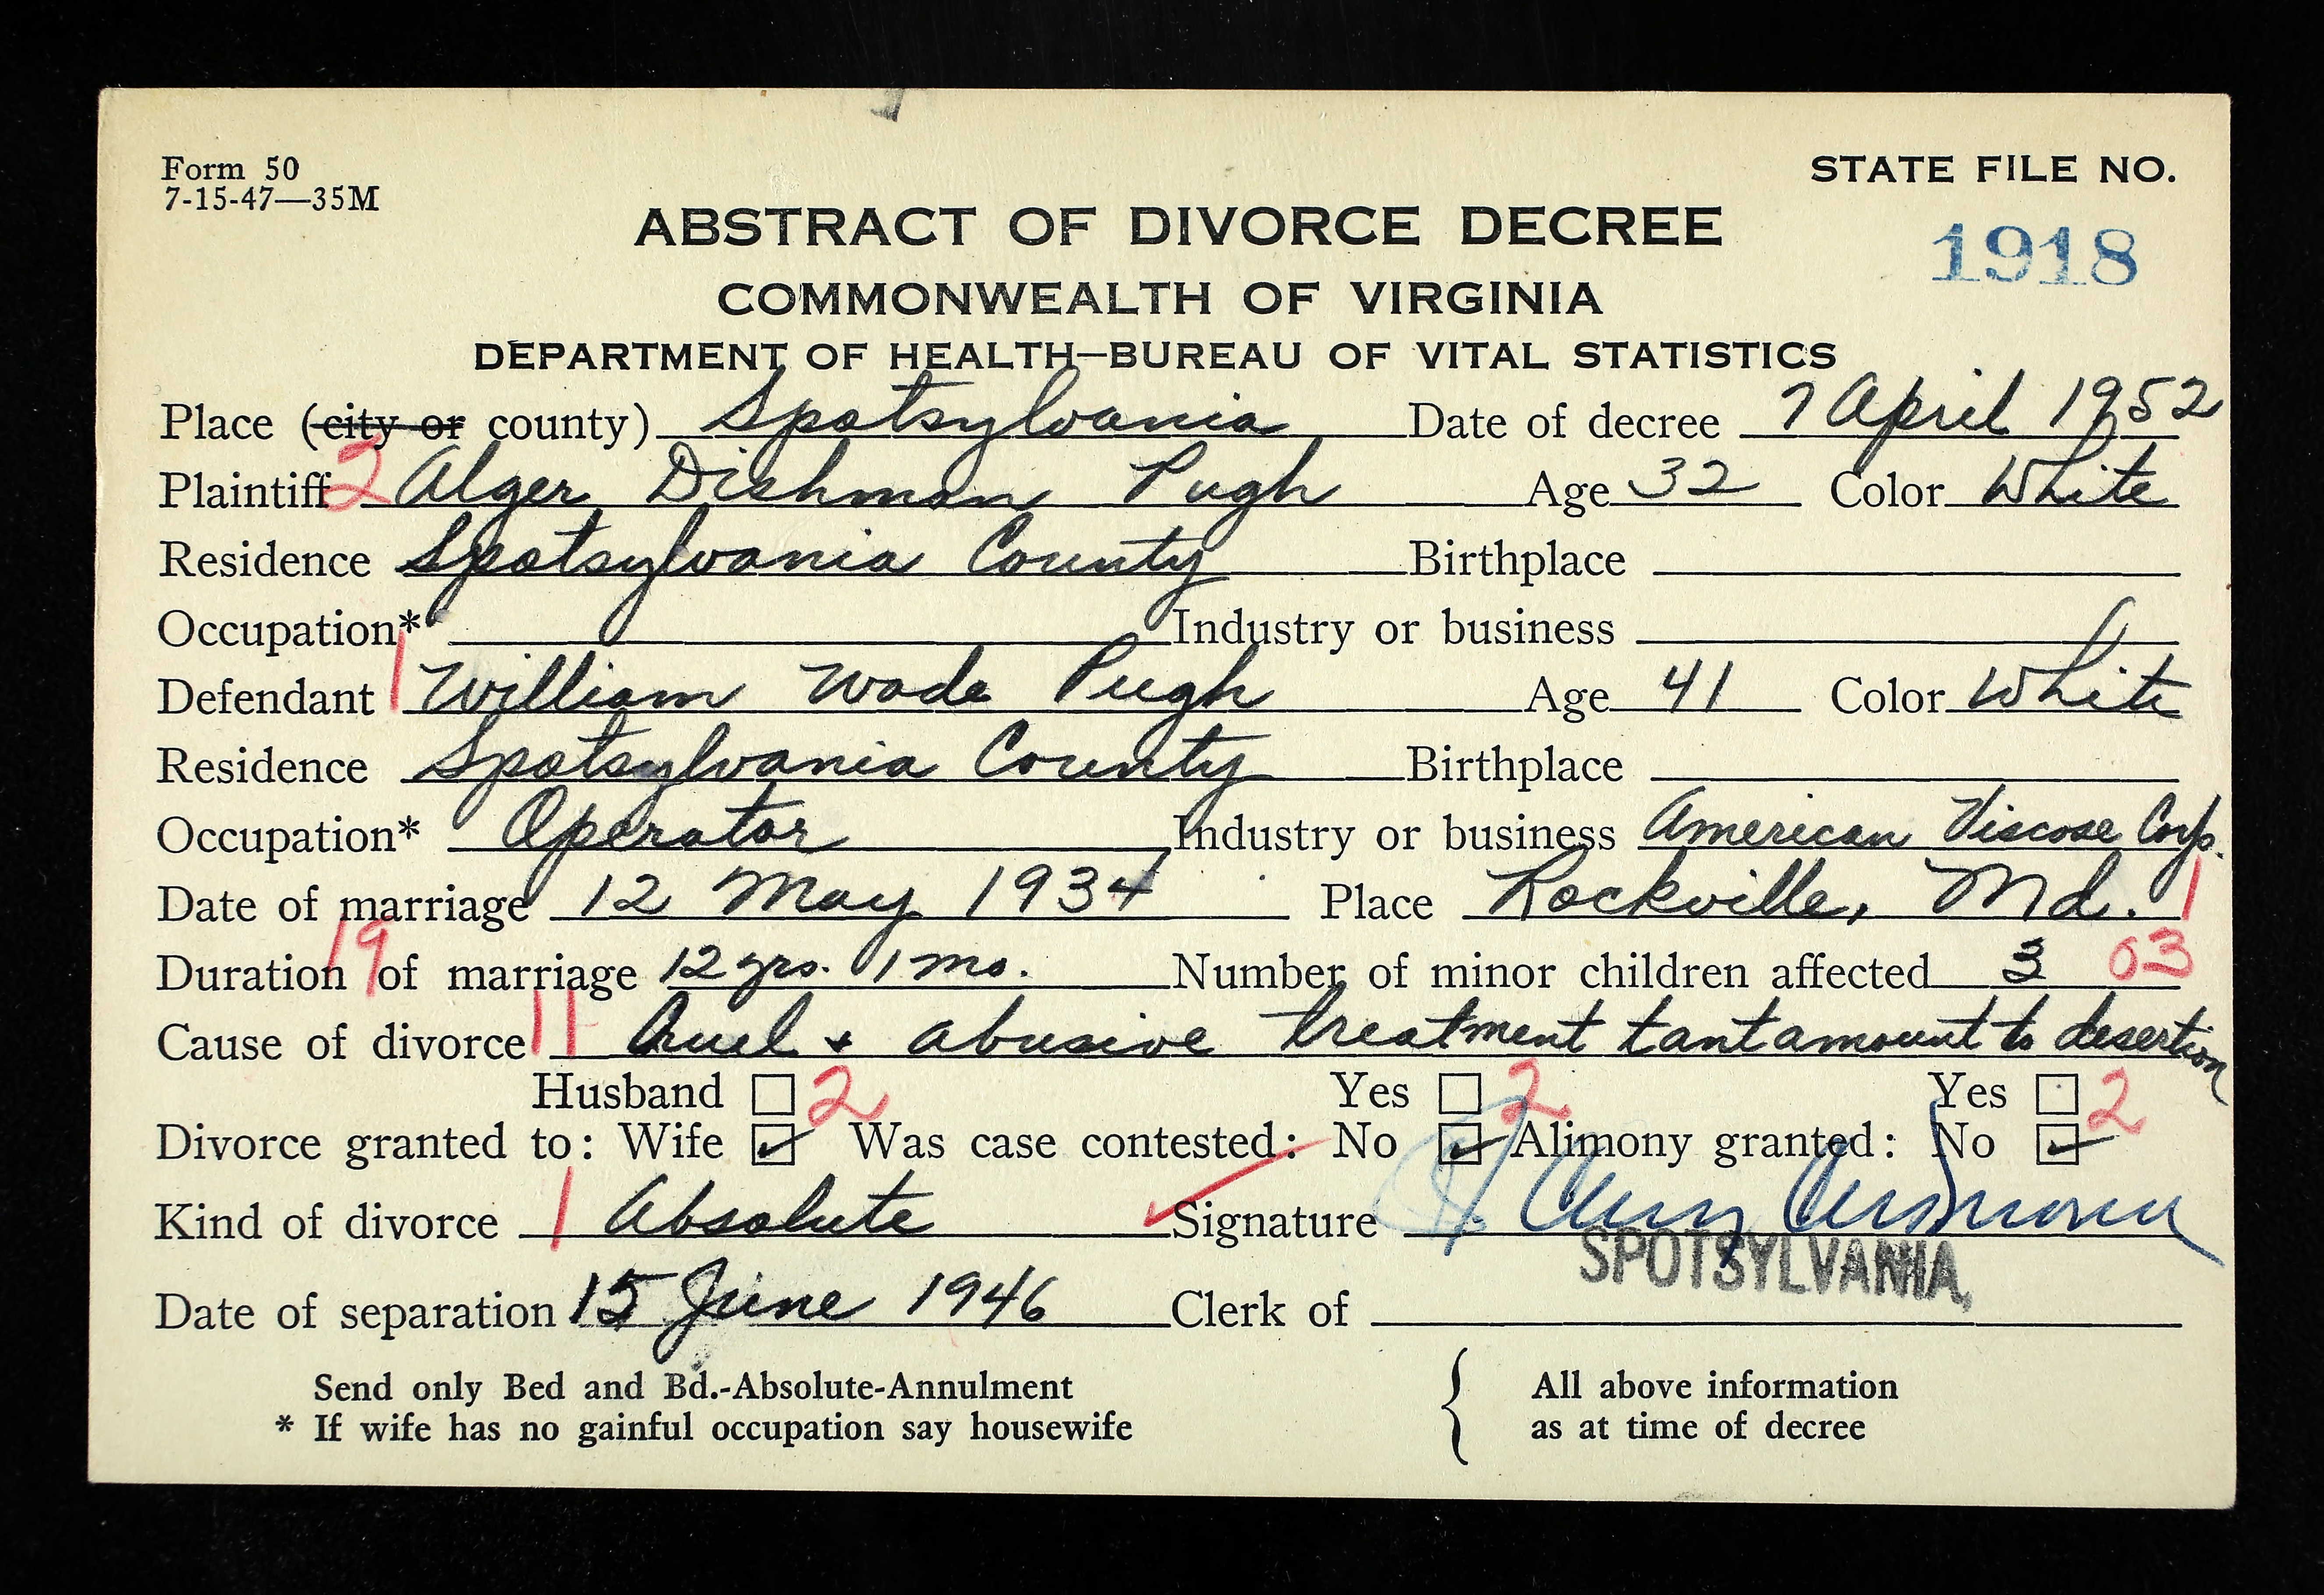 Form 50
7-15-47—35M
STATE FILE NO.
1918
ABSTRACT OF DIVORCE DECREE
COMMONWEALTH OF VIRGINIA
DEPARTMENT OF HEALTH—BUREAU OF VITAL STATISTICS
Place (city or county) Spotsylvania Date of decree 7 April 1952
Plaintiff 2 Alger Dishman Pugh Age 32 Color White
Residence Spotsylvania County Birthplace
Occupation* Industry or business
Defendant 1 William Wade Pugh Age 41 Color White
Residence Spotsylvania County Birthplace
Occupation* Operator Industry or business American Viscose Corp.
Date of marriage 12 May 1934 Place Rockville, Md. 1
19
Duration of marriage 12 yrs. 1 mo. Number of minor children affected 3 03
Cause of divorce 11 Cruel + abusive treatment tantamount to desertion
Husband 2 Yes 2 Yes 2
Divorce granted to: Wife Was case contested: No Alimony granted: No
Kind of divorce 1 Absolute Signature
SPOTSYLVANIA,
Date of separation 15 June 1946 Clerk of
Send only Bed and Bd.-Absolute-Annulment
* If wife has no gainful occupation say housewife
All above information
as at time of decree